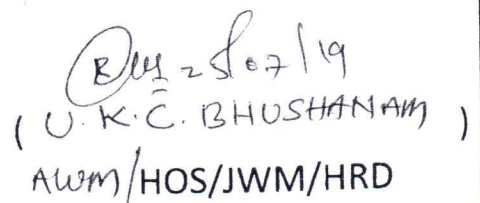 25/07/19
( U.K.C. BHUSHANAM )
AWM/HOS/JWM/HRD